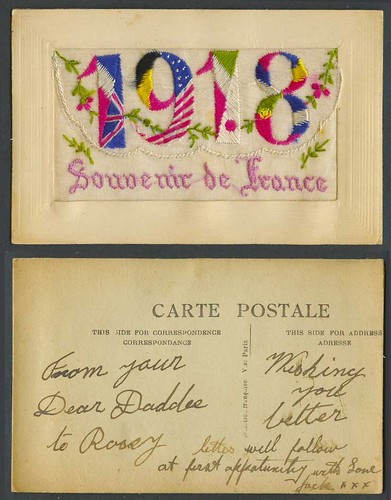 1918
Souvenir de France
CARTE POSTALE
THIS SIDE FOR CORRESPONDENCE
CORRESPONDANCE
THIS SIDE FOR ADDRESS
ADRESSE
Paris
From your
Dear Daddee
to Rosey
Wishing
you
better
letter will follow
at first oppotunity with Love
Jack xxx